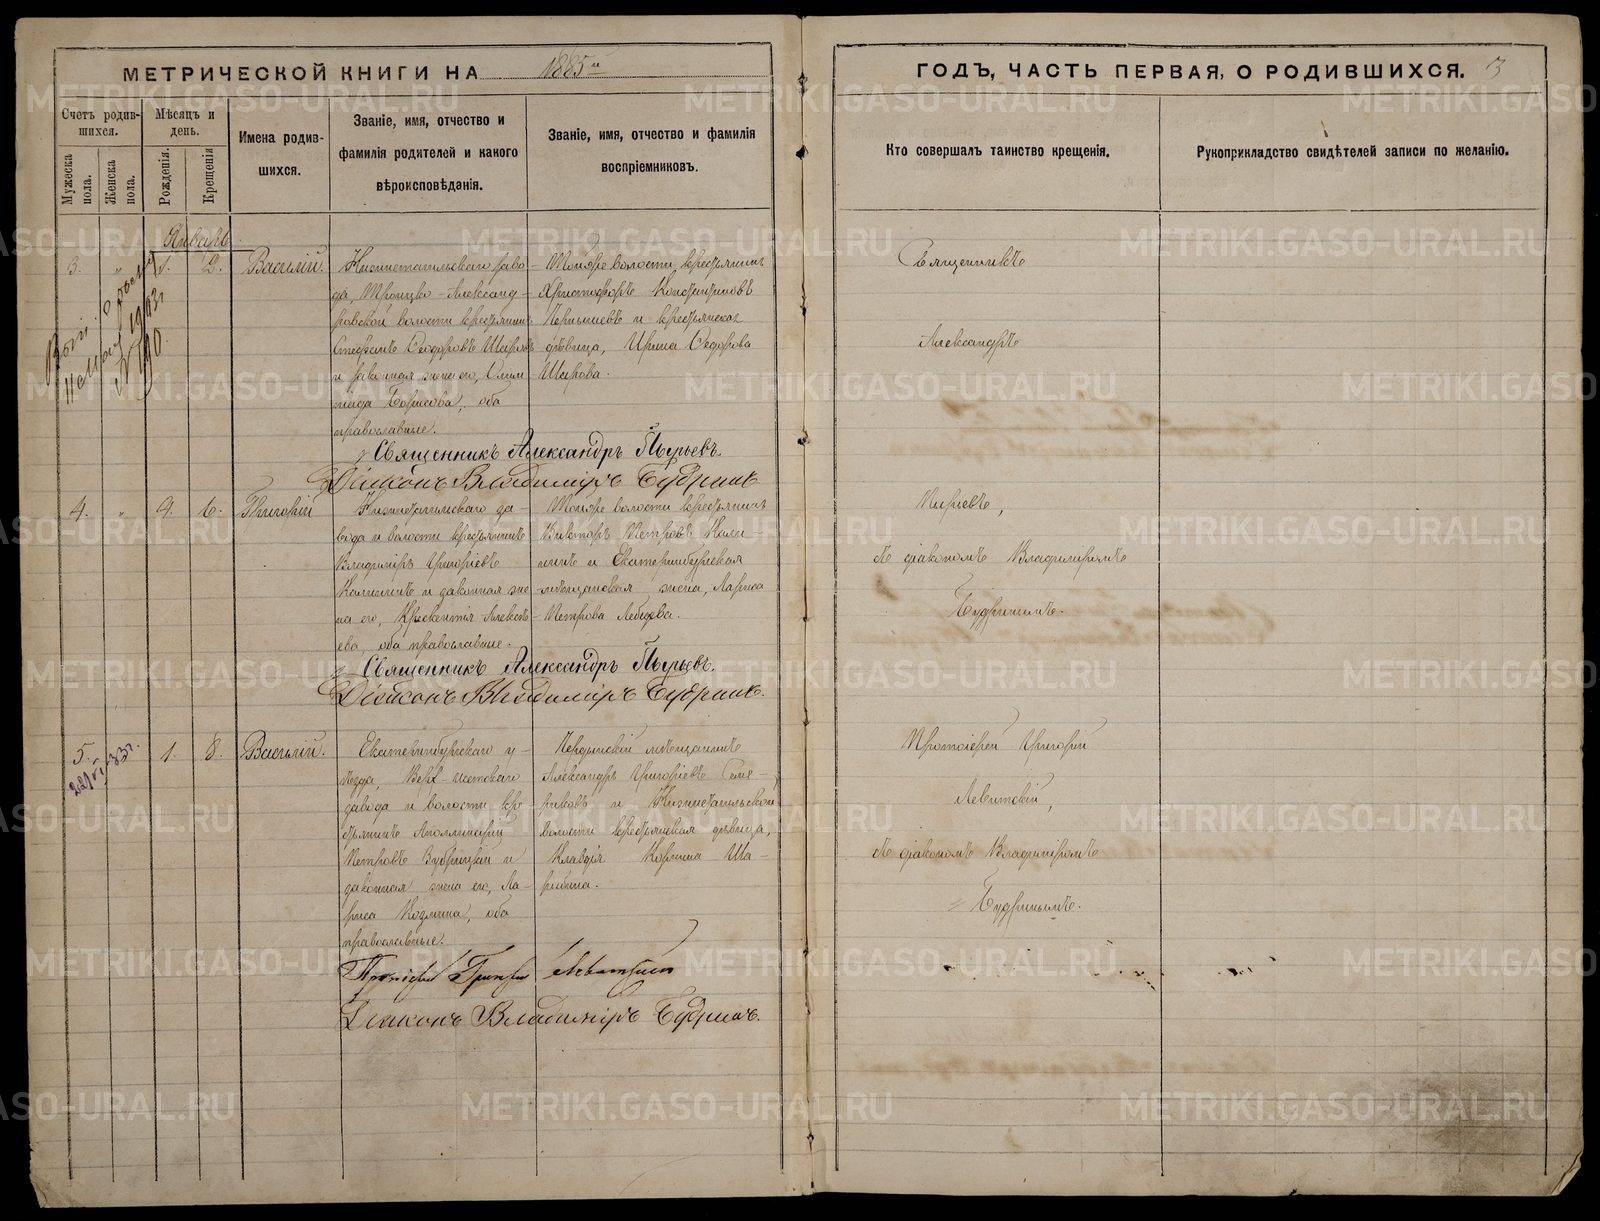 МЕТРИЧЕСКОЙ КНИГИ НА 1885й
ГОДЪ, ЧАСТЬ ПЕРВАЯ, О РОДИВШИХСЯ. 3
Счетъ родив-
шихся.
Мужеска пола.
Женска пола.
Мѣсяцъ и
день.
Рожденія.
Крещенія
Имена родив-
шихся.
Званіе, имя, отчество и
фамилія родителей и какого
вѣроисповѣданія.
Званіе, имя, отчество и фамилія
воспріемниковъ.
Кто совершалъ таинство крещенія.
Рукоприкладство свидѣтелей записи по желанію.
Январь
3. " 1. 2. Василій.
Нижнетагильскаго заво-
да, Троицко-Александ-
ровской волости крестьянинъ
Стефанъ Ѳеодоровъ Шаровъ
и законная жена его, Олим
піада Борисова, оба
православные.
Тойже волости крестьянинъ
Христофоръ Константиновъ
и крестьянская
дѣвица, Ирина Ѳедорова
Шарова.
Священникъ
Александръ
Священникъ Александръ Пырьевъ.
Діаконъ Владимиръ Будринъ
4. " 4. 6. Григорій
Нижнетагильскаго за-
вода и волости крестьянинъ
Владиміръ Григоріевъ
Калининъ и законная же
на его, Крискентія Алексѣ
ева, оба православные.
Тойже волости крестьянинъ
Викторъ Петровъ Кали
нинъ и Екатеринбургская
мѣщановская жена, Лариса
Петрова Лебедева.
Пырьевъ,
съ діакономъ Владиміромъ
Будринымъ.
Священникъ Александръ Пырьевъ.
Діаконъ Владимиръ Будринъ.
5. 1. 8. Василій.
Екатеринбургскаго у-
ѣзда, Верх-Исетскаго
завода и волости кре
стьянинъ Аполлинарій
Петровъ Зубрицкій и
законная жена его, Ла-
риса Козмина, оба
православные.
Чердынскій мѣщанинъ
Александръ Григоріевъ
и Нижнетагильской
волости крестьянская дѣвица,
Клавдія
Протоіерей Григорій
Левитскій,
съ діакономъ Владиміромъ
Будринымъ.
Протоіерей Григорій Левитскій
Діаконъ Владимиръ Будринъ.
METRIKI.GASO-URAL.RU